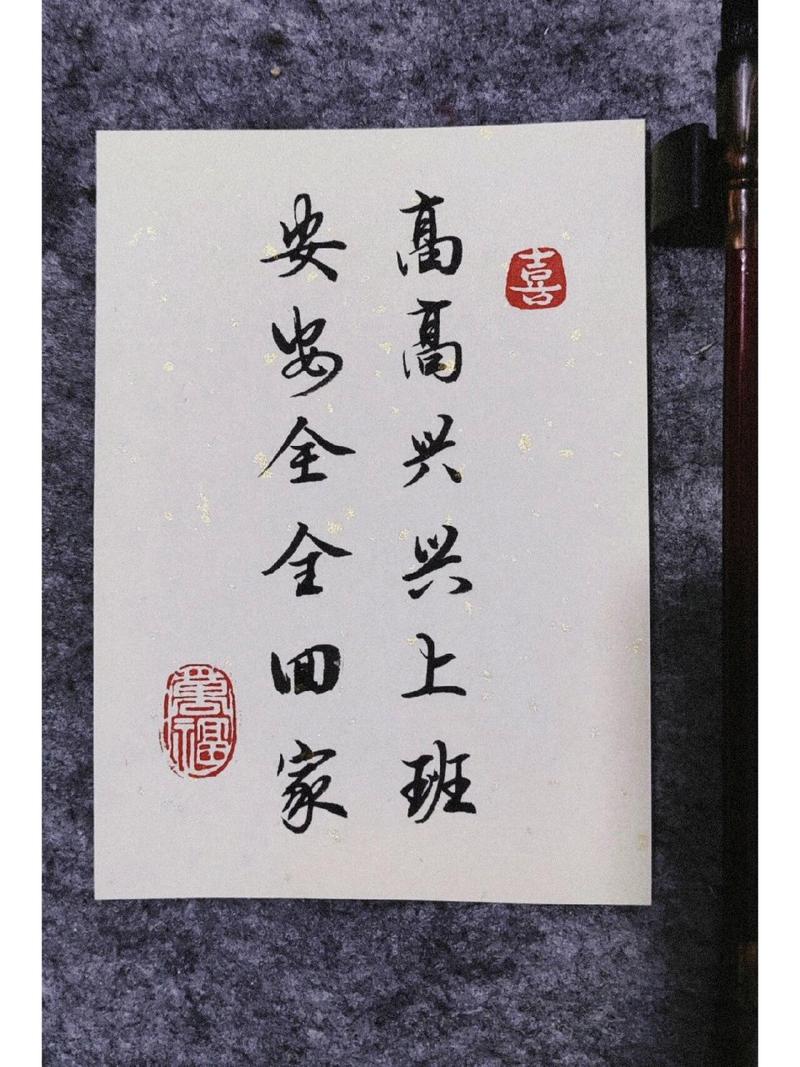 喜
高高兴兴上班
安安全全回家
萬福